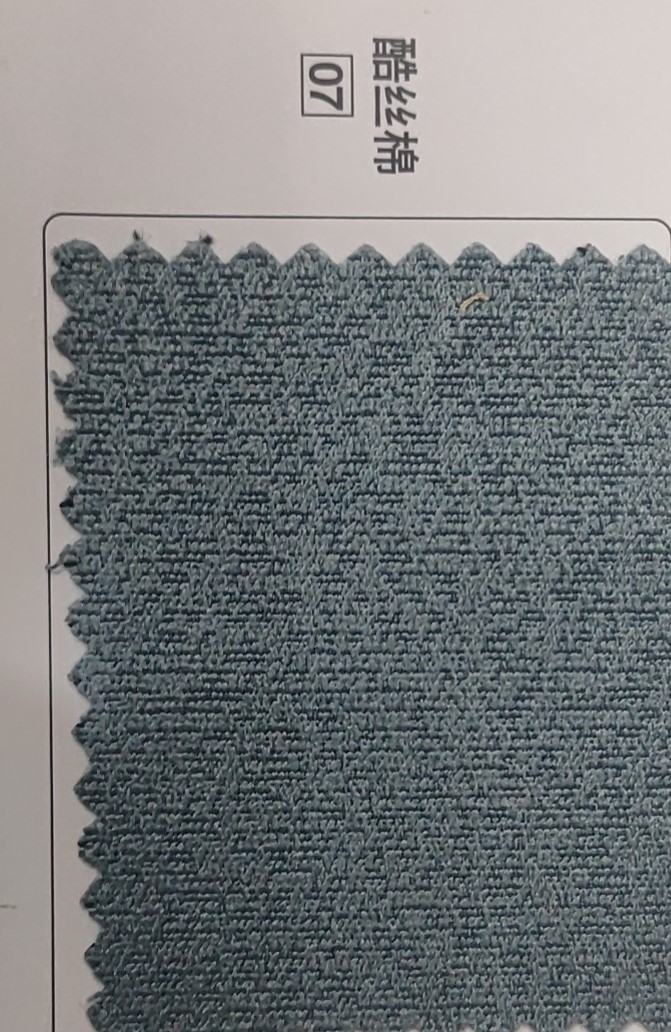 酷丝棉
07